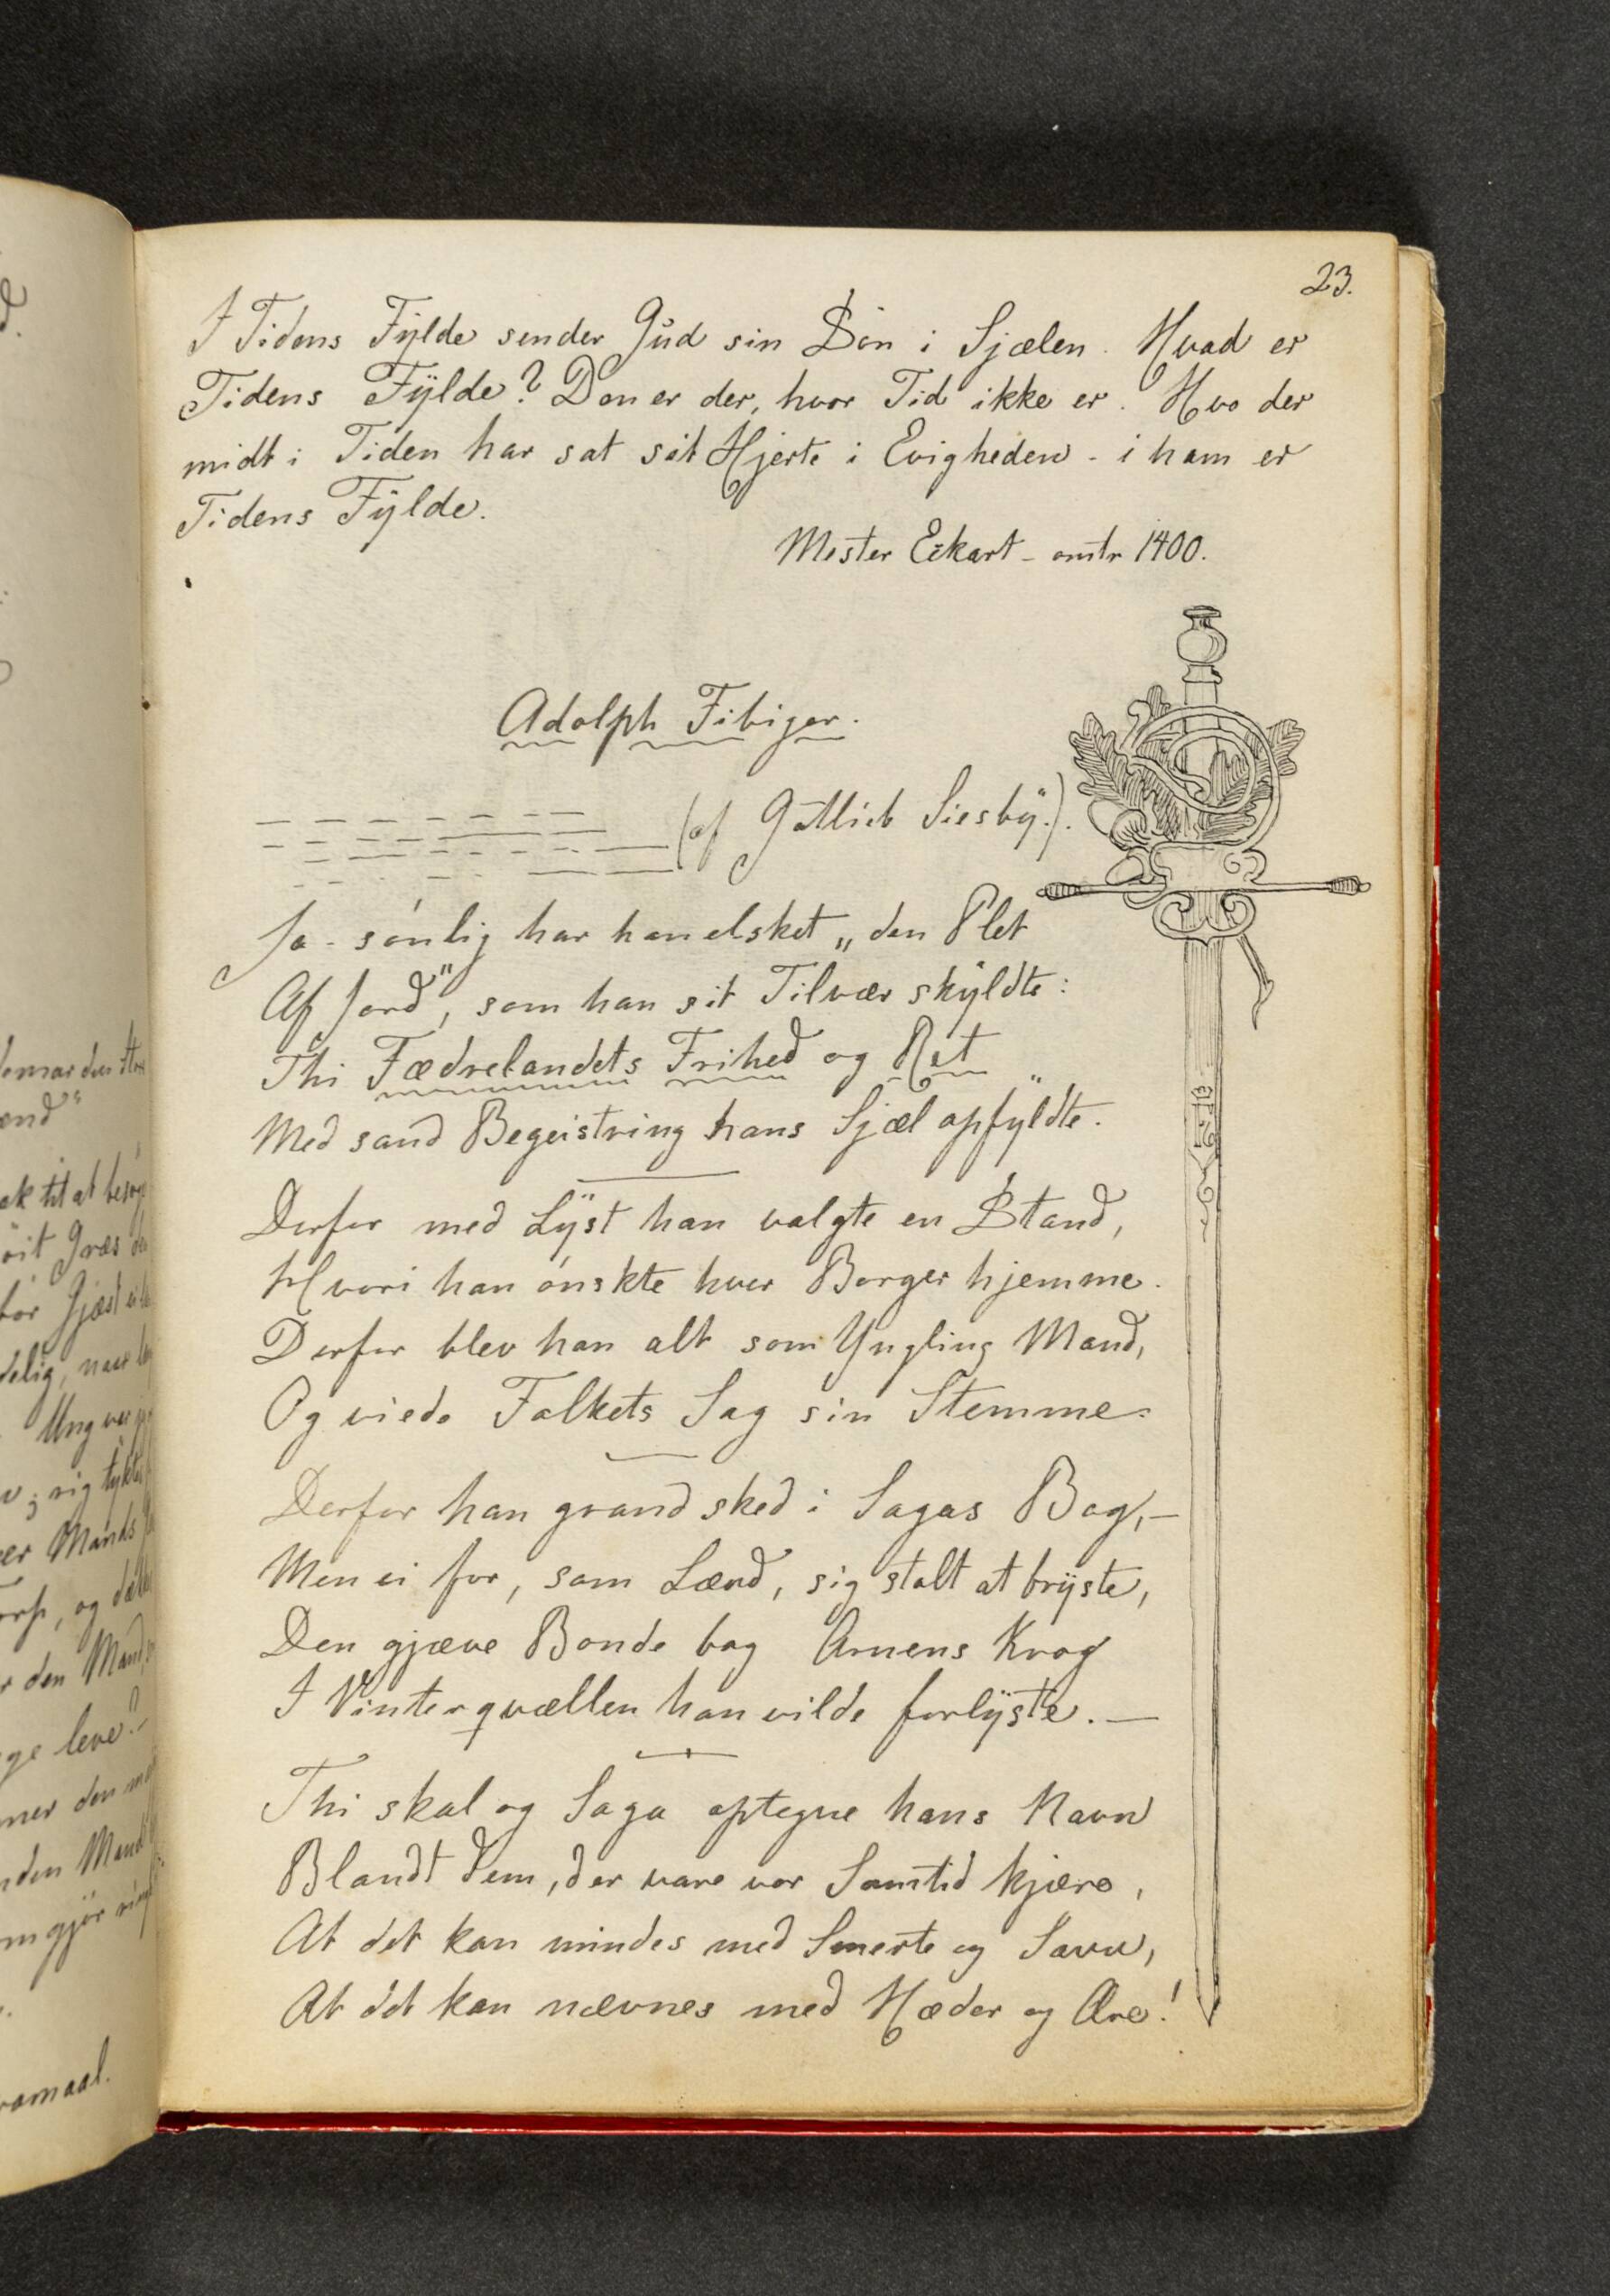 23.
I Tidens Fylde sender Gud sin Søn i Sjælen. Hvad er
Tidens Fylde? Den er der, hvor Tid ikke er. Hvo der
midt i Tiden har sat sit Hjerte i Evigheden - i ham er
Tidens Fylde.
Mester Eckart - omtr 1400.
Adolph Fibiger.
(af Gottlieb Siesby.).
Ja - sønlig har han elsket „den Plet
Af Jord", som han sit Tilvær skyldte:
Thi Fædrelandets Frihed og Ret
Med sand Begeistring hans Sjæl opfyldte.
Derfor med Lyst han valgte en Stand,
Hvori han ønskte hver Borger hjemme.
Derfor blev han alt som Yngling Mand,
Og viede Folkets Sag sin Stemme.
Derfor han grandsked i Sagas Bog, —
Men ei for, som Lærd, sig stolt at bryste,
Den gjæve Bonde bag Arnens Krog
I Vinterqvællen han vilde forlyste. —
Thi skal og Saga optegne hans Navn
Blandt dem, der vare vor Samtid kjære,
At det kan mindes med Smerte og Savn,
At det kan nævnes med Hæder og Ære!